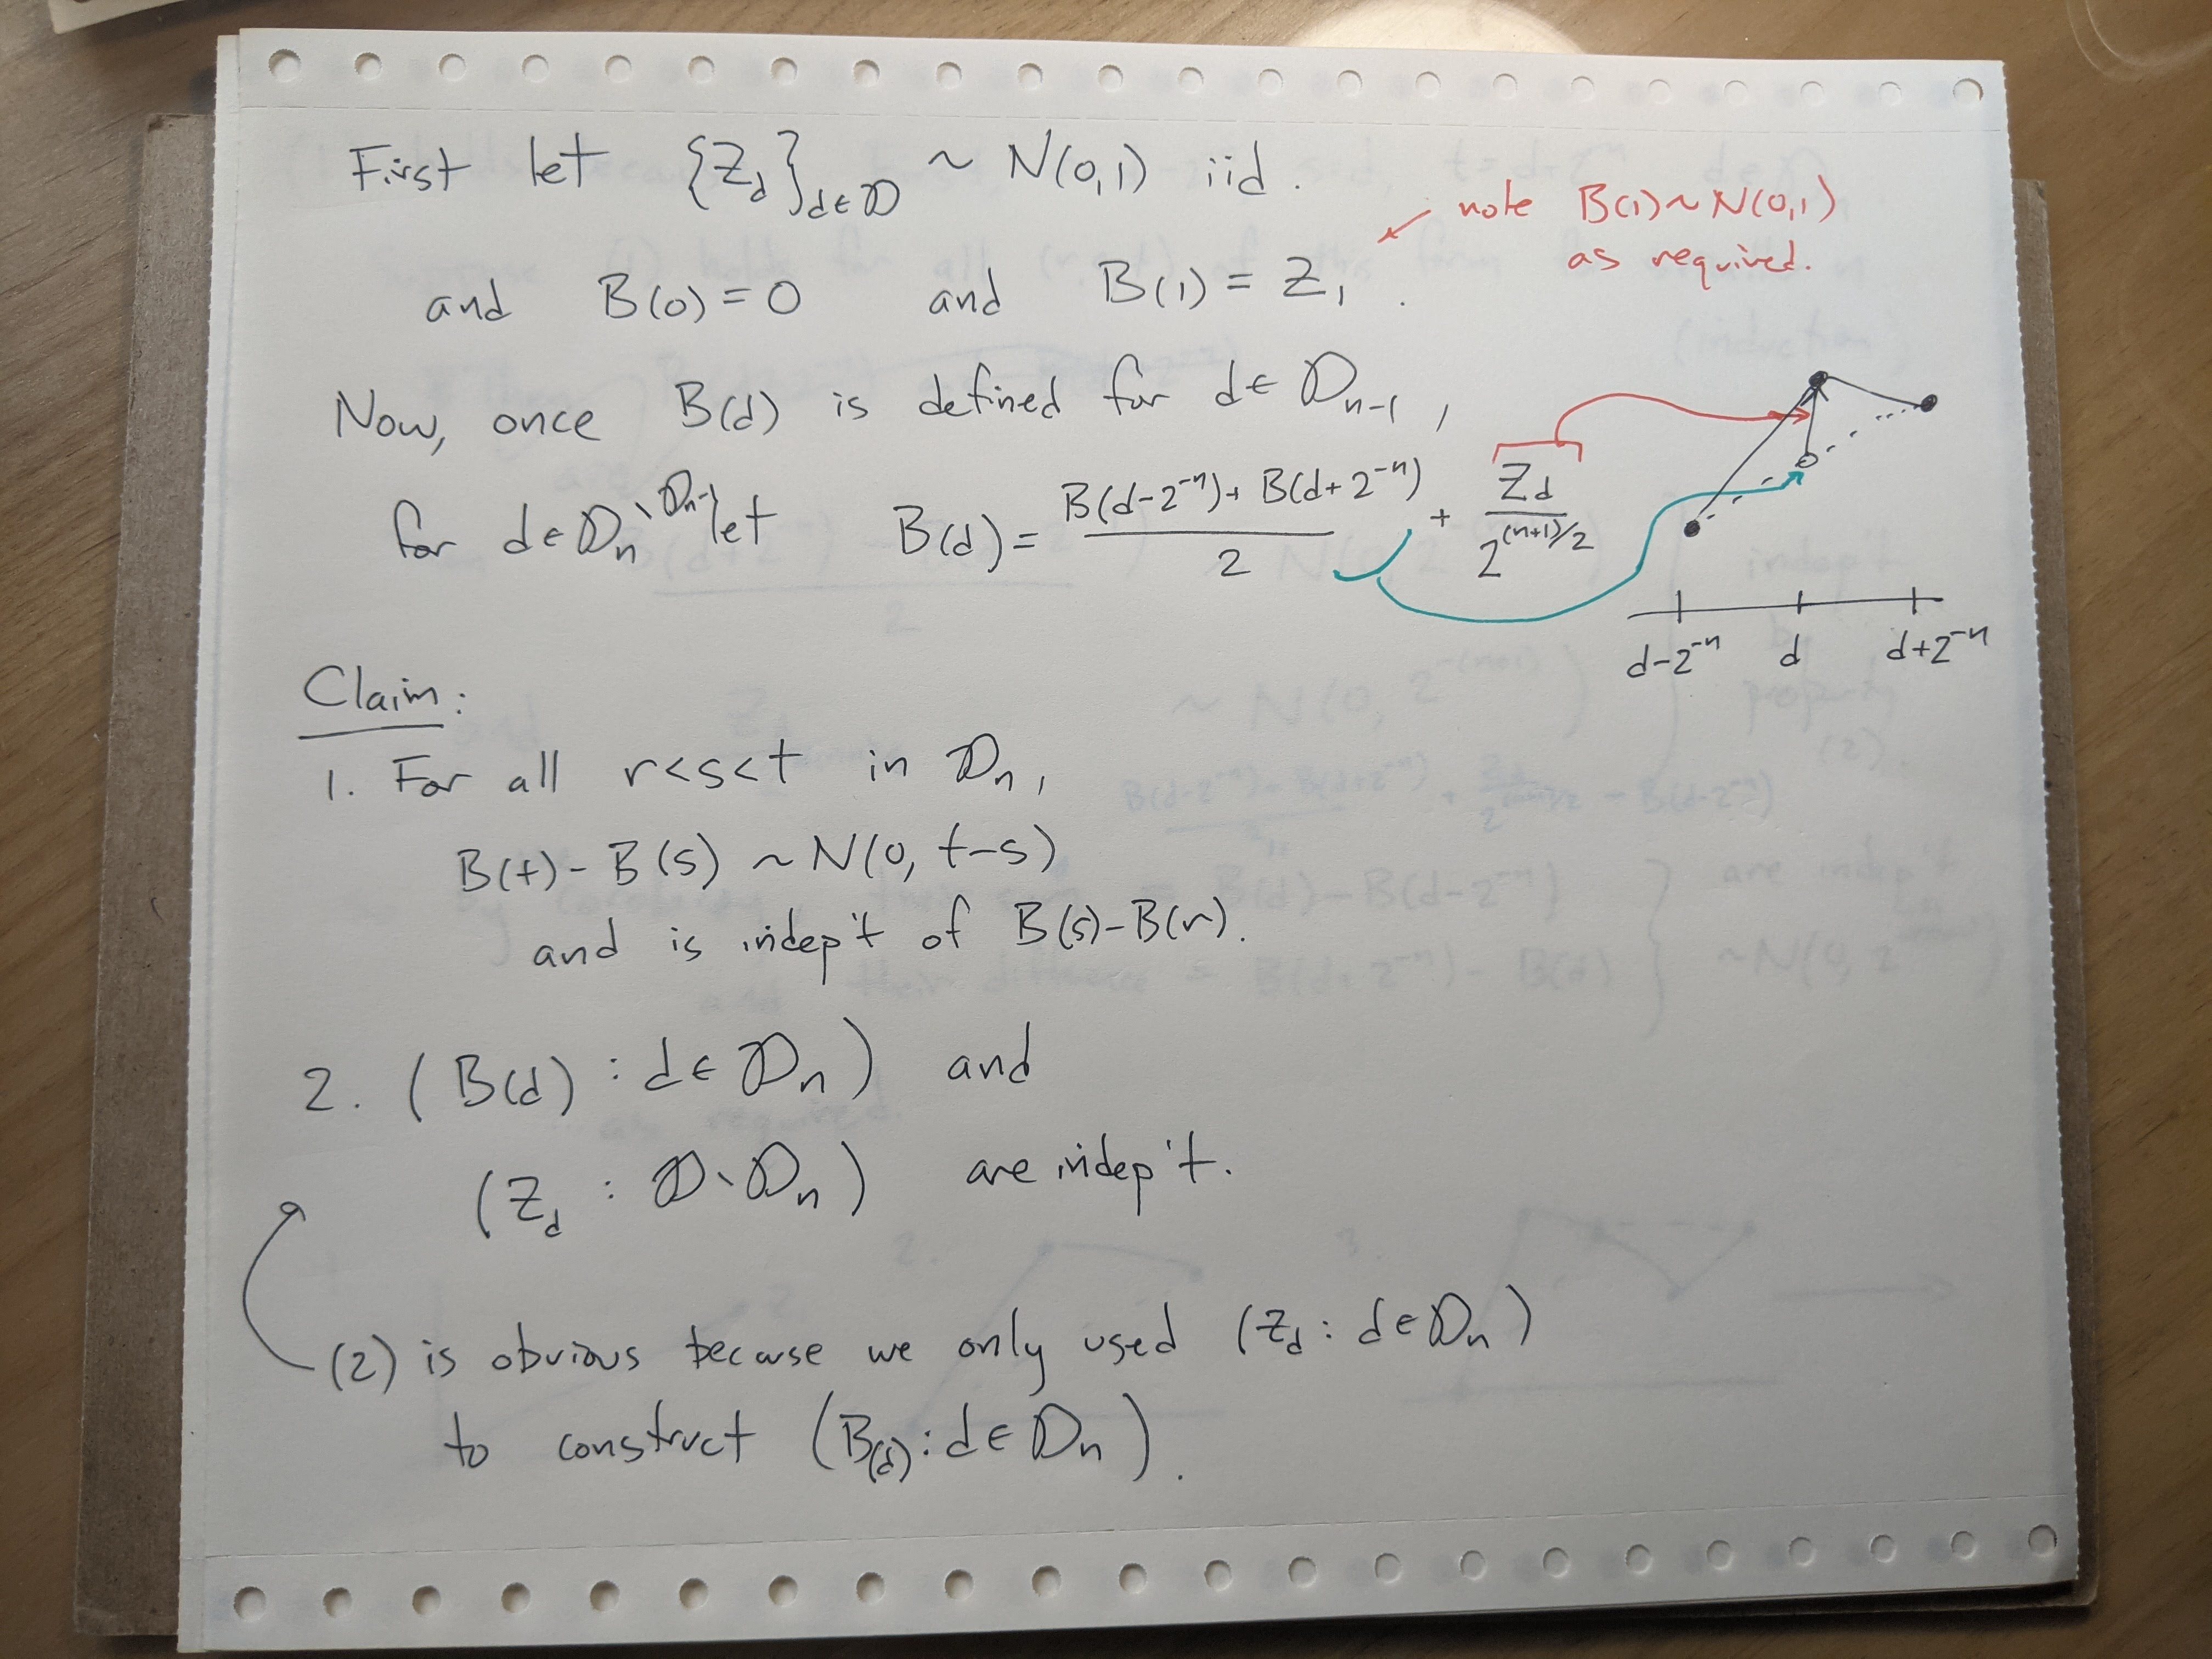 First let {Z_d}_{d∈𝒟} ~ N(0,1) iid.
note B(1)~N(0,1)
as required.
and B(0)=0 and B(1) = Z_1.
Now, once B(d) is defined for d∈𝒟_{n-1},
for d∈𝒟_n∖𝒟_{n-1} let B(d) = (B(d-2^{-n}) + B(d+2^{-n}))/2 + Z_d/2^{(n+1)/2}
d-2^{-n} d d+2^{-n}
Claim:
1. For all r<s<t in 𝒟_n,
B(t)-B(s) ~ N(0, t-s)
and is indep't of B(s)-B(r).
2. (B(d) : d∈𝒟_n) and
(Z_d : 𝒟∖𝒟_n) are indep't.
(2) is obvious because we only used (Z_d : d∈𝒟_n)
to construct (B(d) : d∈𝒟_n).